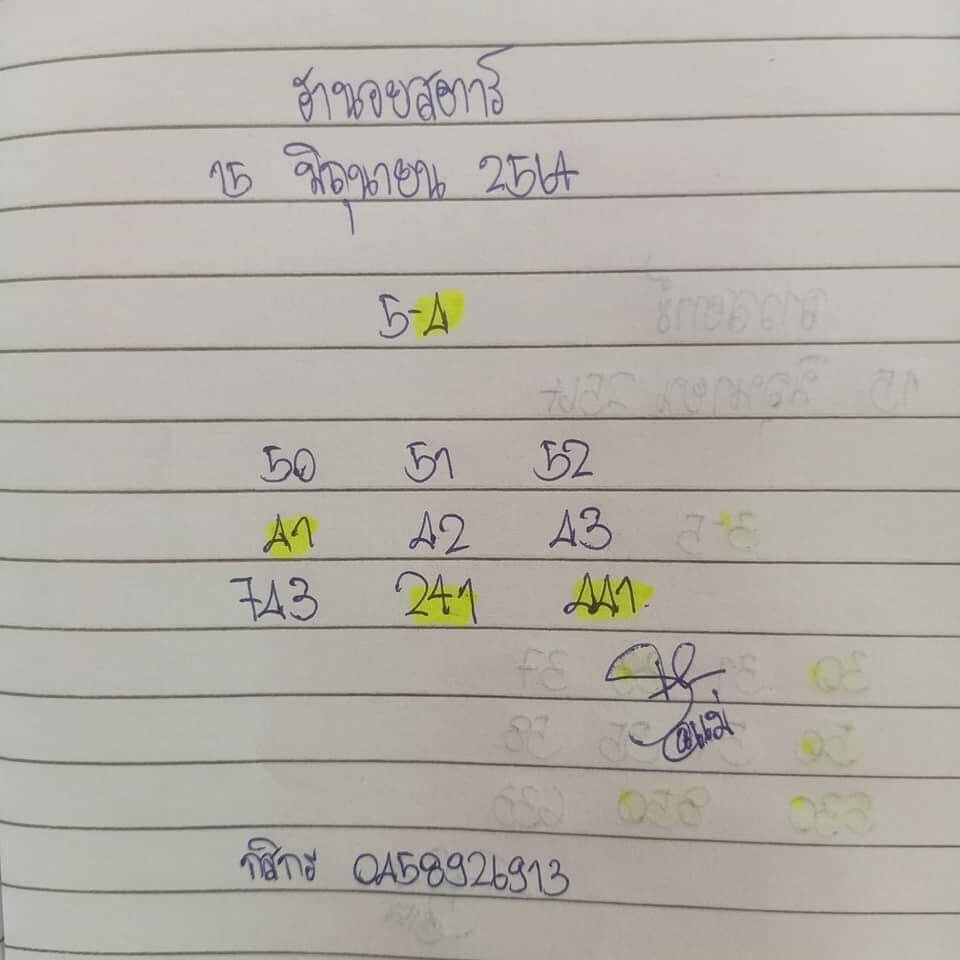 ฮานอยสตาร์
15 มิถุนายน 2564
5-4
50 51 52
41 42 43
743 241 441
กสิกร 0458926913